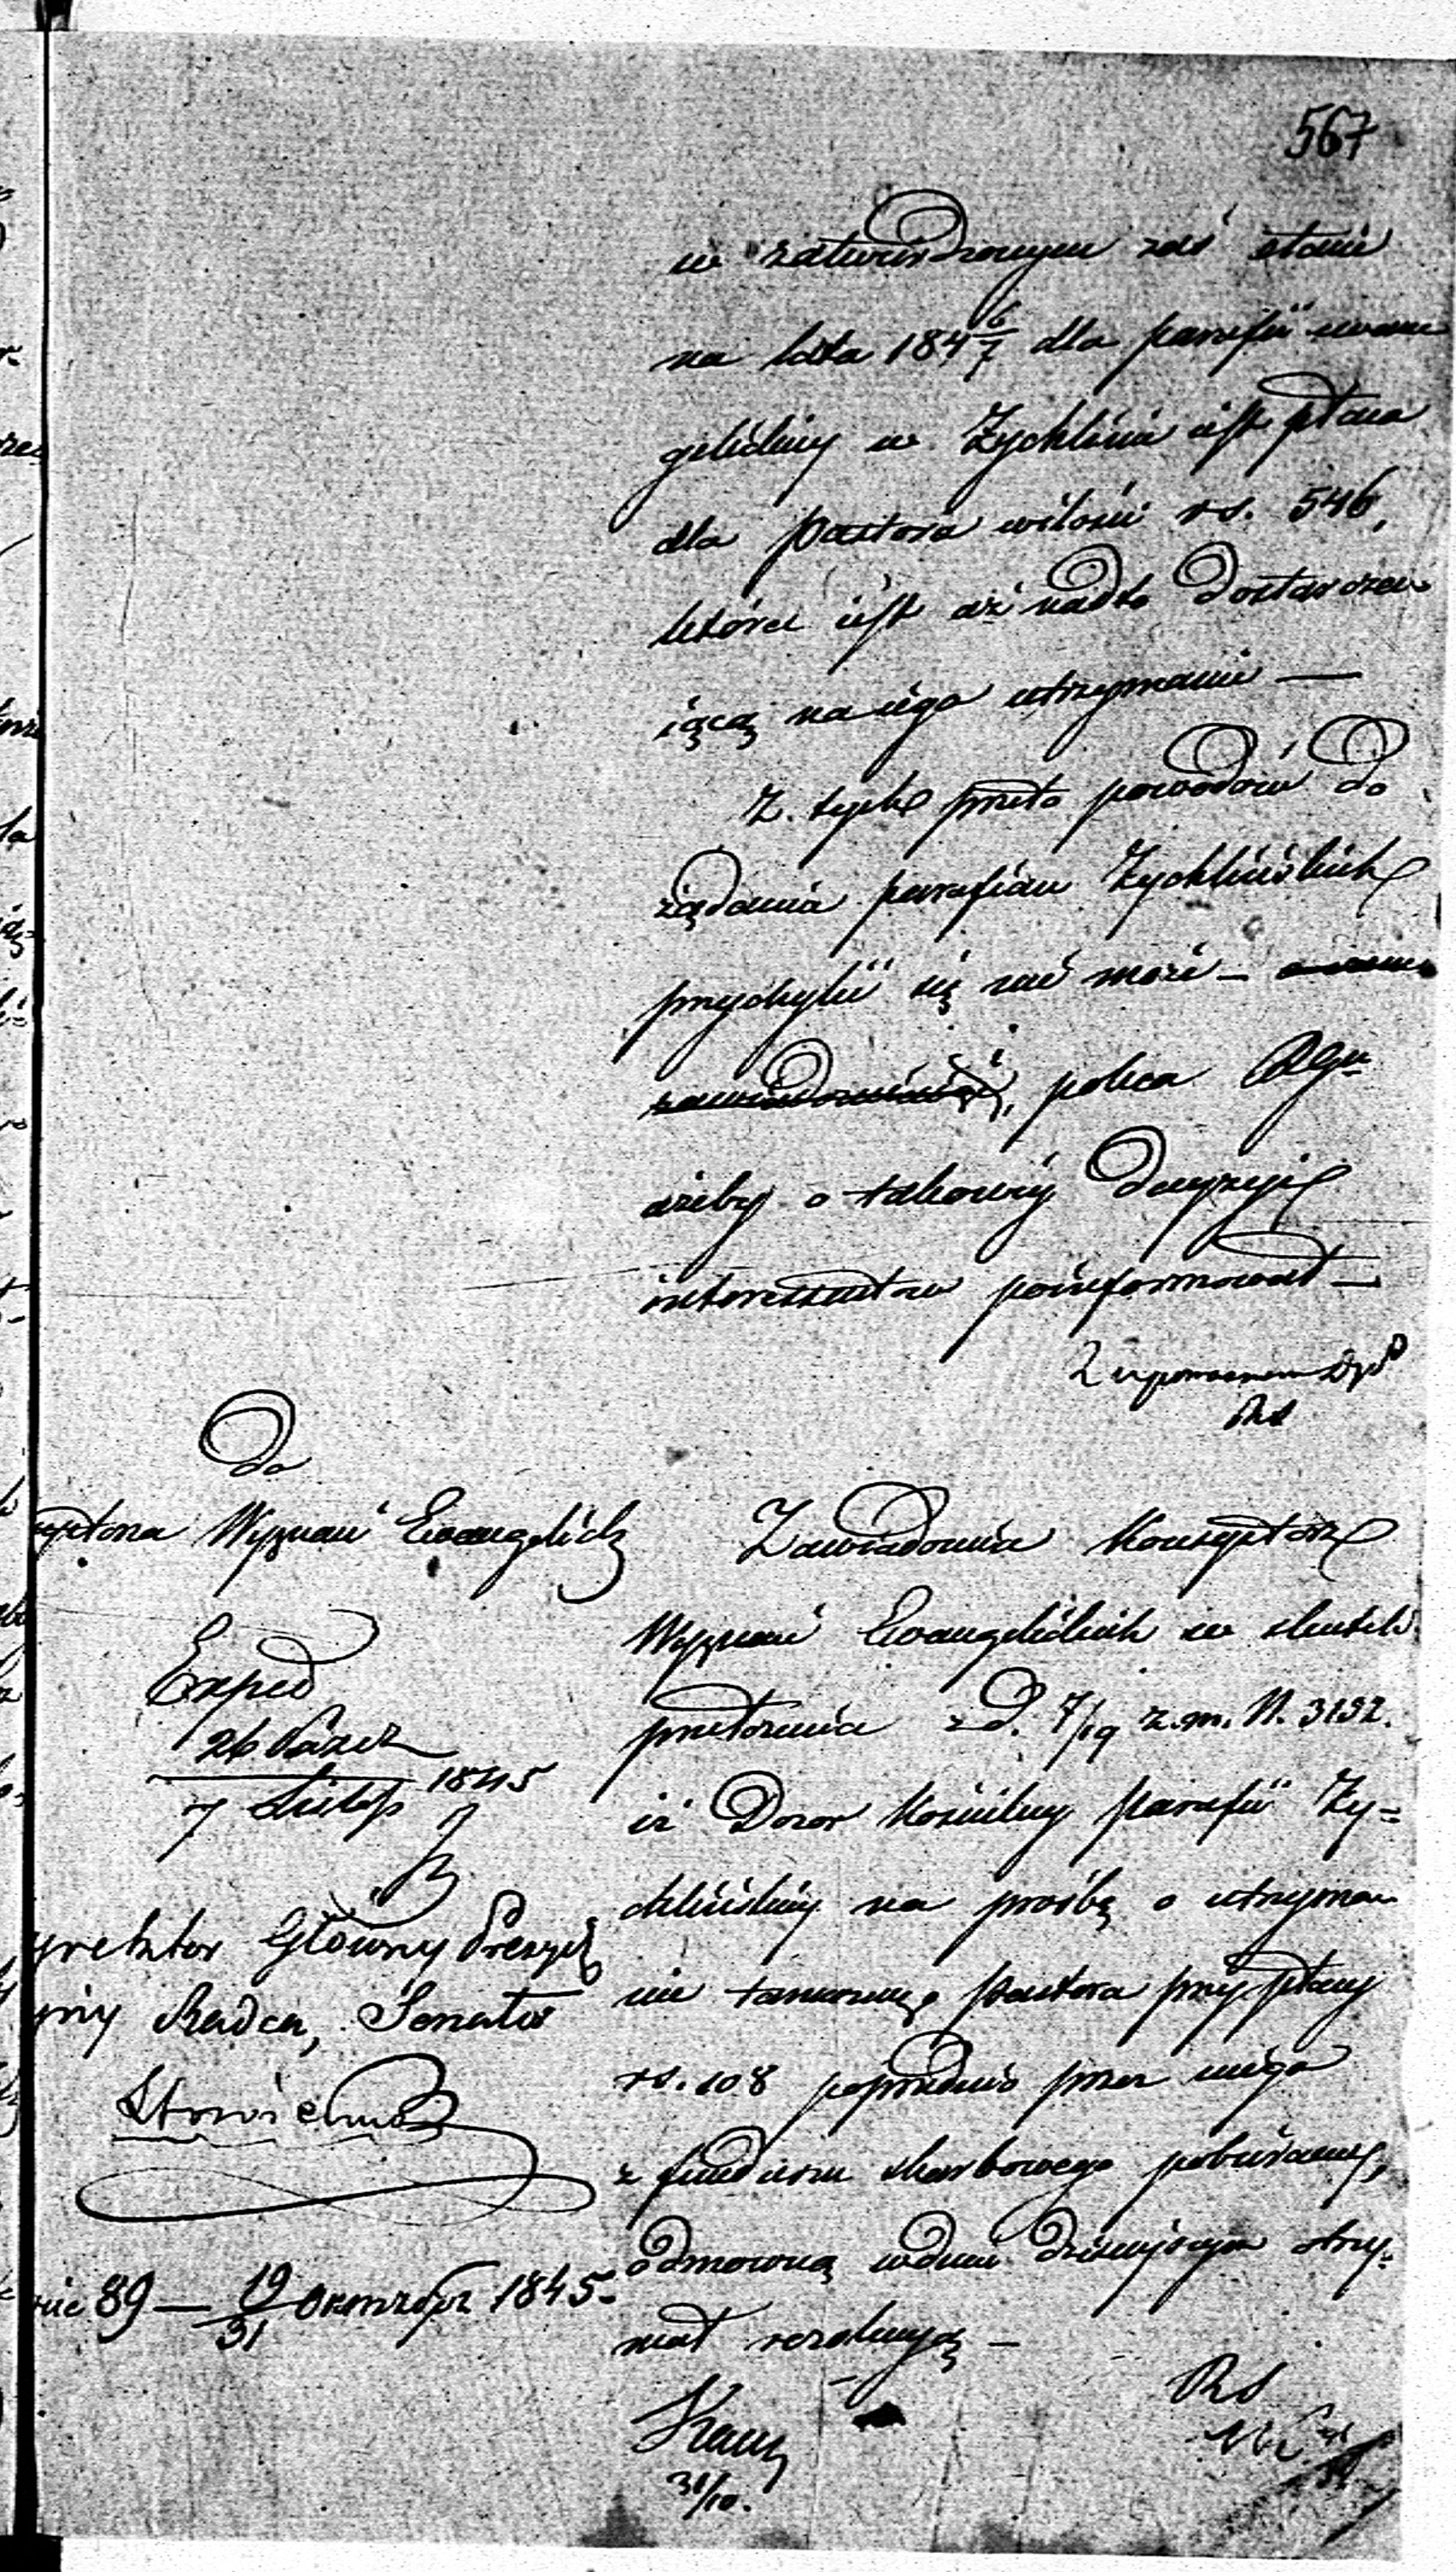 567
w zatwierdzonym zaś etacie
na lata 184 6/7 dla parafii ewan
gelickiey w Żychlinie iest płaca
dla Pastora wilości rs. 546,
która iest aż nadto dostarcza
iącą na iego utrzymanie —
Z tych przeto powodów do
żądania parafian Żychlińskich
przychylić się nie może —
zawiadamiając, poleca RGu
ażeby o takowéy decyzyi
interessantów poinformował —
Z upoważnienia
Do
Wyznań Ewangelick
Exped
26 Paźdz
7 Listop 1845
Dyrektor Główny Prezyd
Radca, Senator
89 — 19/31 Октября 1845.
Zawiadamia Konsystorz
Wyznań Ewangelickich w skutek
przełożenia z d. 7/19 z.m. N. 3132.
iż Dozor Kościelny Parafii Ży=
chlińskiey na prośbę o utrzyma
nie tamecznego Pastora przy płacy
rs. 108 poprzednio przez niego
z funduszu skarbowego pobieraney,
odmowną w dniu dzisieyszym otrzy=
mał rezolucyą —
31/10.